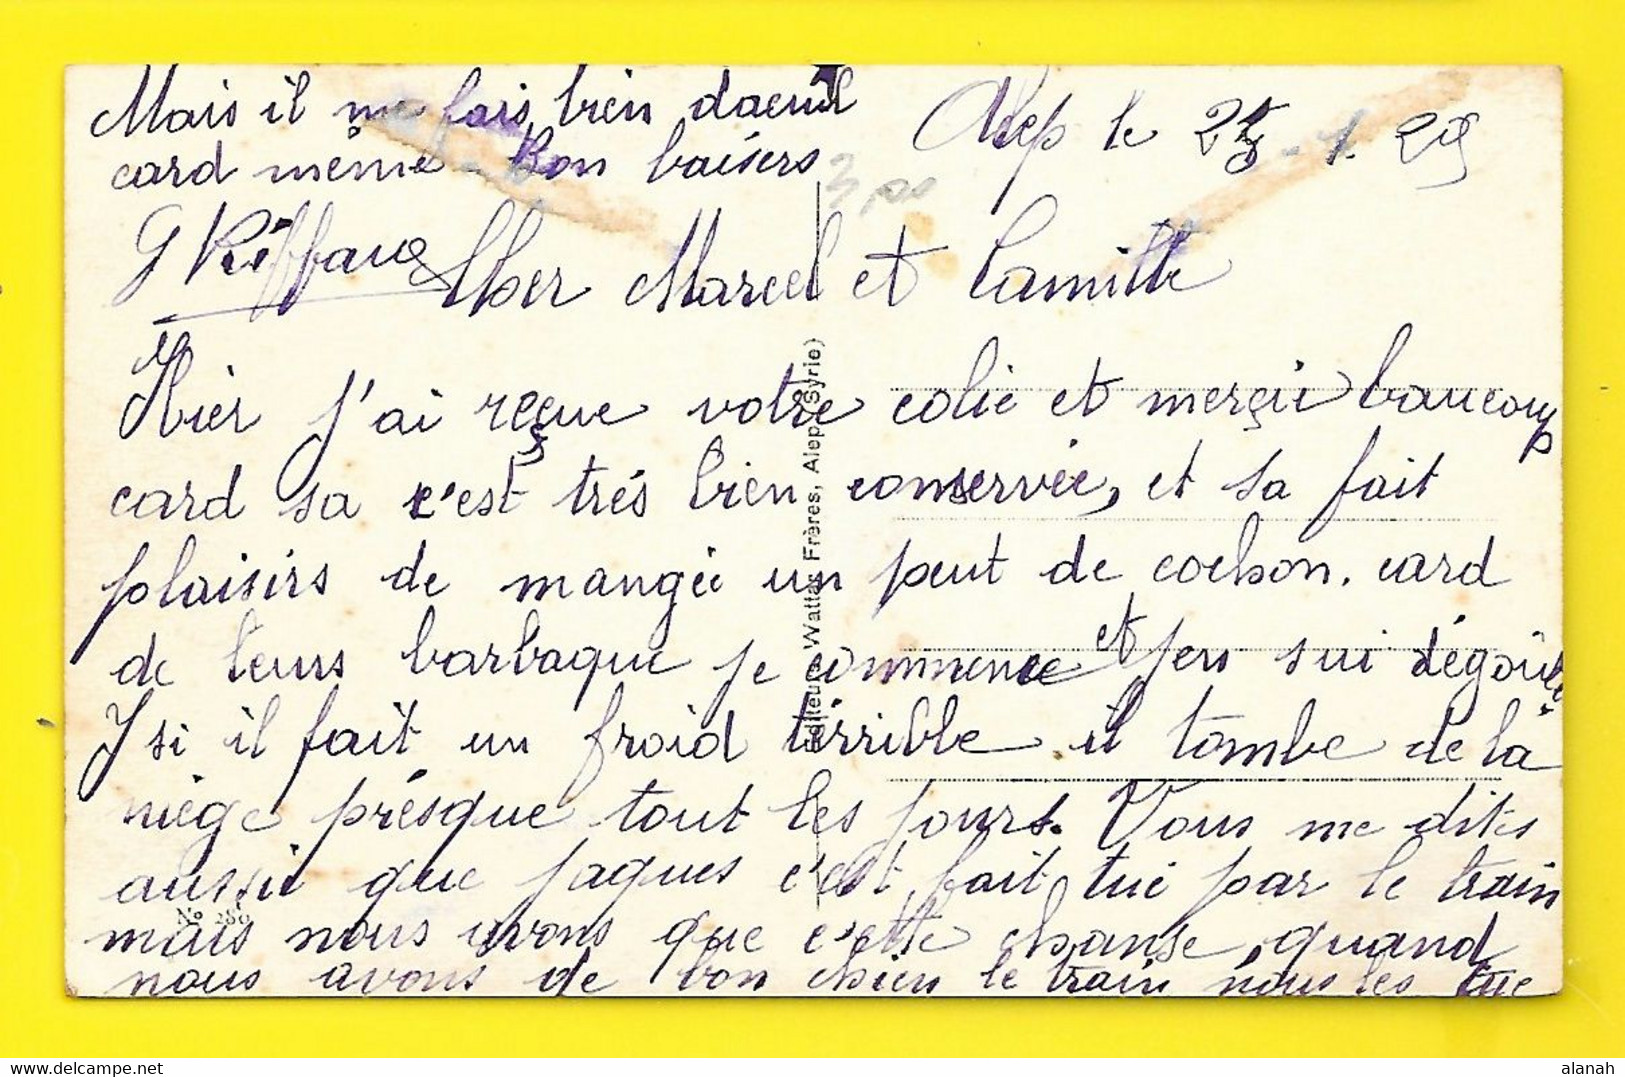 Mais il me fais bien daeuil
card même - Bon baisers
Alep le 25-1.29
3,00
G Riffaud
Cher Marcel et Camille
Hier j'ai reçue votre colie et merçie baucoup
card sa c'est trés bien conservée, et sa fait
plaisirs de mangée un peut de cochon. card
de leurs barbaque je commence et jen sui dégoûte.
Isi il fait un froid térrible il tombe de la
niége présque tout les jours. Vous me dites
aussie que jaques c'est fait tué par le train
mais nous avons que c'ette chanse, quand
nous avons de bon chien le train nous les tue
Editeurs Wattar Frères, Alep (Syrie)
Nº 289
delcampe.net
alanah